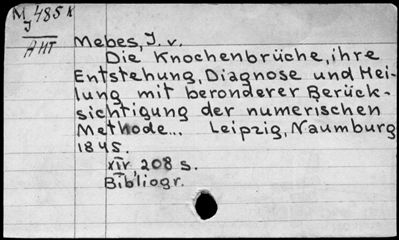 M 485 x
J
АНТ
Mebes, J. v.
Die Knochenbrüche, ihre
Entstehung, Diagnose und Hei-
lung mit beronderer Berück-
sichtigung der numerischen
Methode... Leipzig, Naumburg
1845.
XIV, 208 s.
Bibliogr.